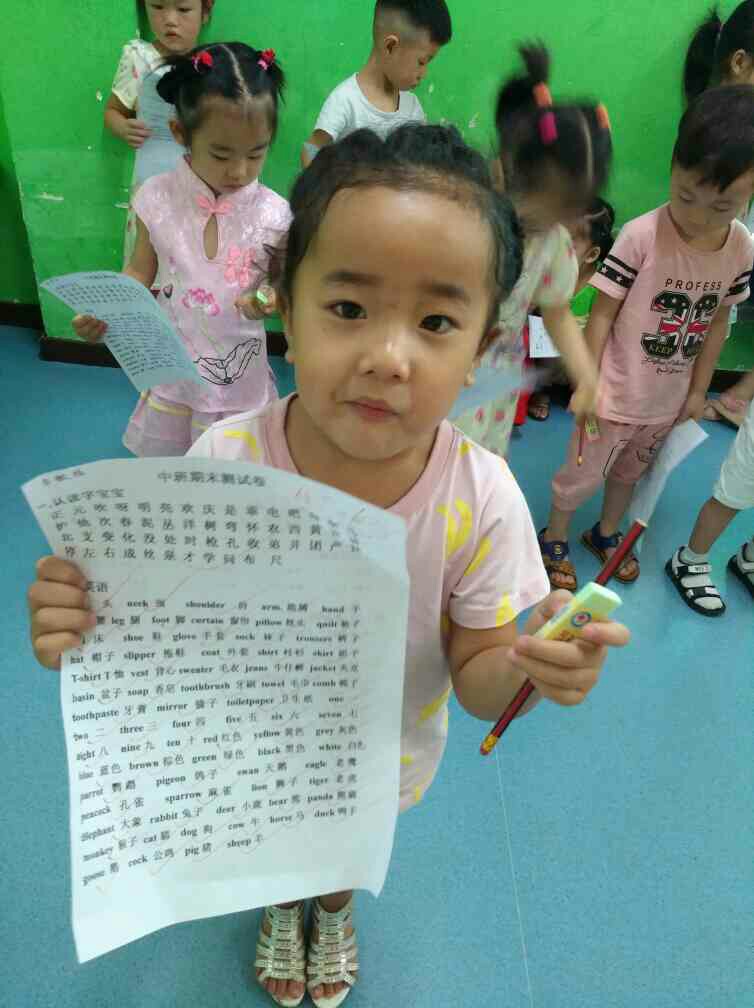 中班期末测试卷
一、认读字宝宝
正 元 吹 呀 明 亮 欢 庆 是 乖 电 吧
护 他 次 春 泥 丛 洋 树 弯 怀 农 西 黄
北 支 变 化 没 处 时 枪 孔 收 弟 并 团 产
停 左 右 成 丝 最 才 学 问 布 尺
英语
头 neck 颈 shoulder 肩 arm 胳膊 hand 手
腰 leg 腿 foot 脚 curtain 窗帘 pillow 枕头 quilt 被子
床 shoe 鞋 glove 手套 sock 袜子 trousers 裤子
hat 帽子 slipper 拖鞋 coat 外套 shirt 衬衫 skirt 裙子
T-shirt T 恤 vest 背心 sweater 毛衣 jeans 牛仔裤 jacket 夹克
basin 盆子 soap 香皂 toothbrush 牙刷 towel 毛巾 comb 梳子
toothpaste 牙膏 mirror 镜子 toiletpaper 卫生纸 one 一
two 二 three 三 four 四 five 五 six 六 seven 七
eight 八 nine 九 ten 十 red 红色 yellow 黄色 grey 灰色
blue 蓝色 brown 棕色 green 绿色 black 黑色 white 白色
parrot 鹦鹉 pigeon 鸽子 swan 天鹅 eagle 老鹰
peacock 孔雀 sparrow 麻雀 lion 狮子 tiger 老虎
elephant 大象 rabbit 兔子 deer 小鹿 bear 熊 panda 熊猫
monkey 猴子 cat 猫 dog 狗 cow 牛 horse 马 duck 鸭子
goose 鹅 cock 公鸡 pig 猪 sheep 羊
PROFESS
KEEP